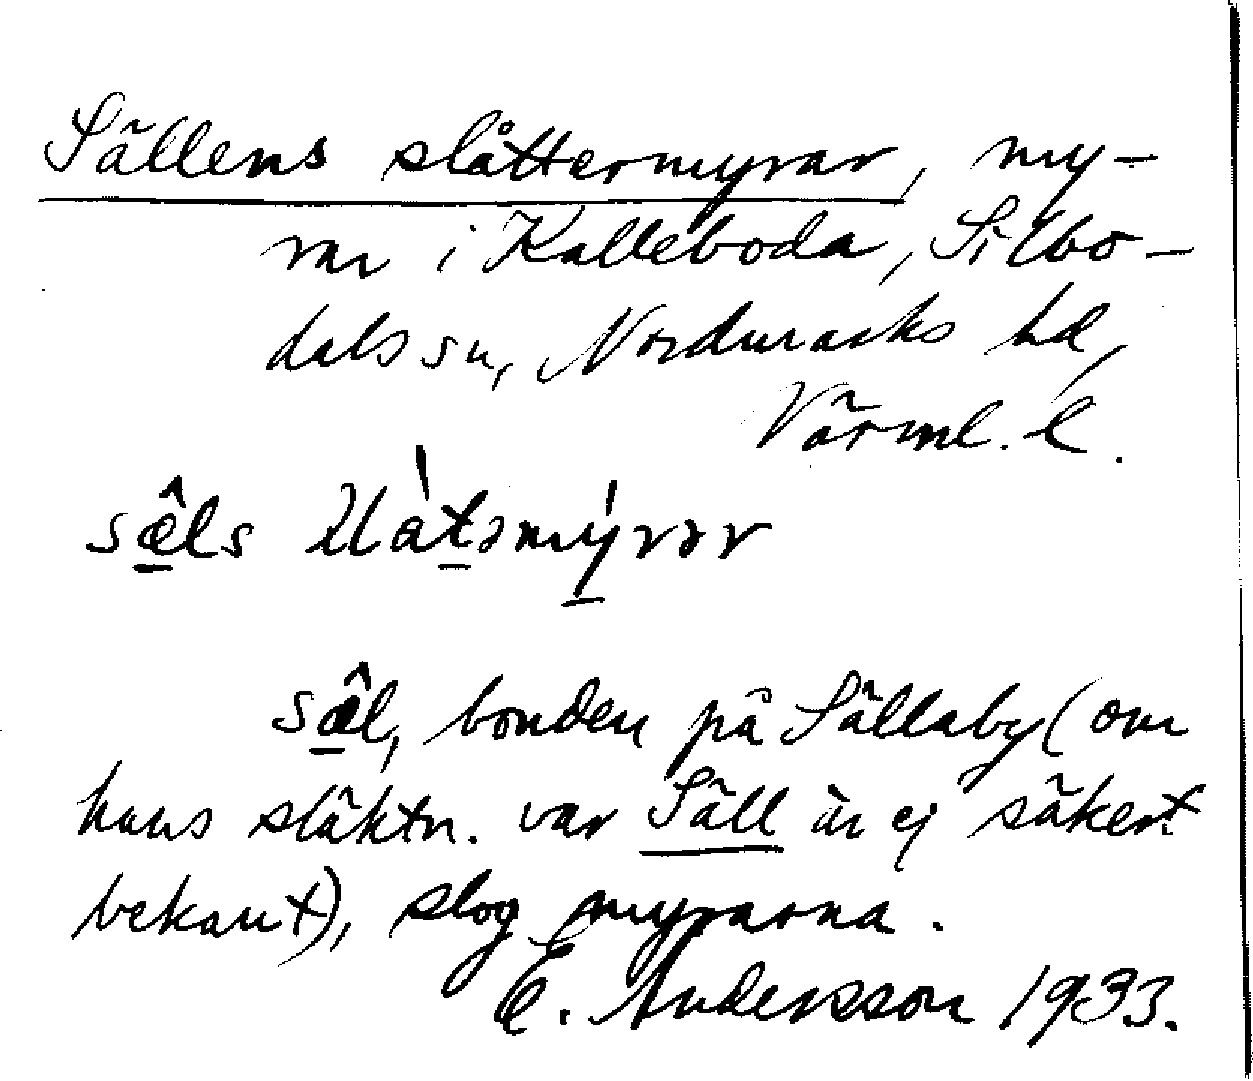 Sällens slåttermyrar, my-
rar i Kalleboda, Silbo-
dals sn, Nordmarks hd,
Värml. l.
sæ̂ls
sæ̂l, bonden på Sällaby (om
hans släktn. var Säll är ej säkert
bekant), slog myrarna.
E. Andersson 1933.